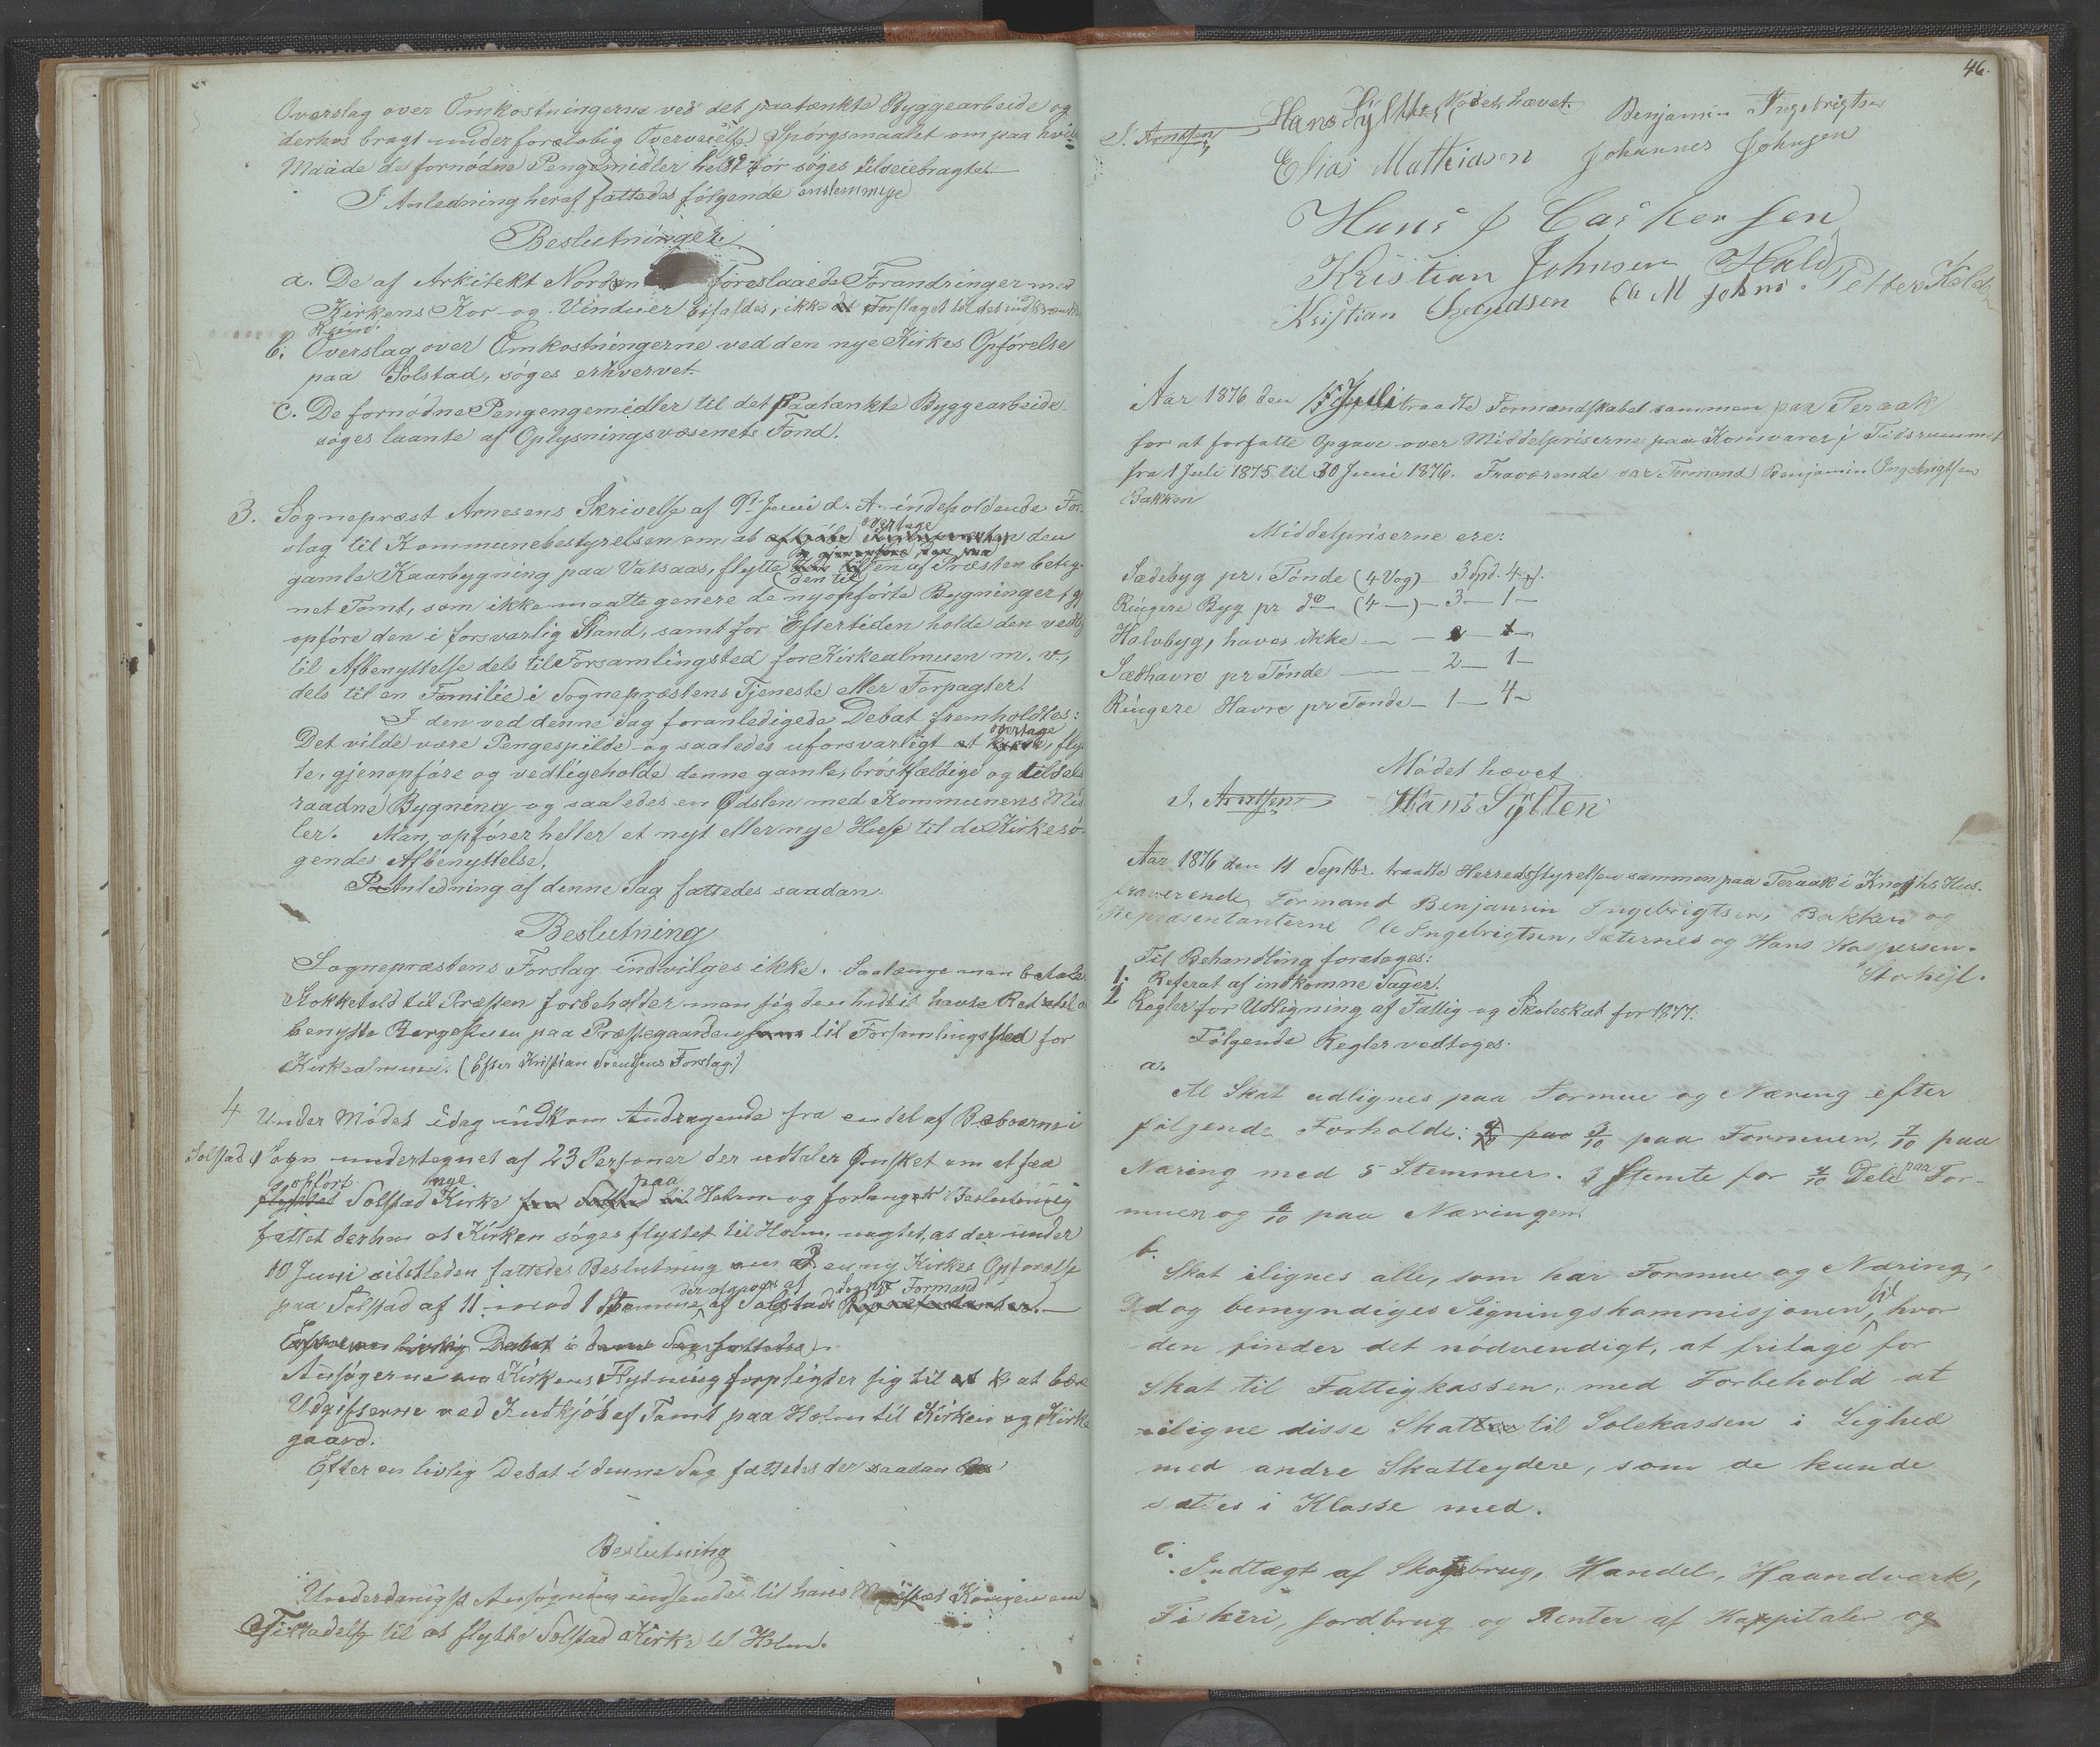 Overslag over Omkostningerne ved det paatænkte Byggearbeide og
derhos bragt under foreløbig Overveielse Spørgsmaalet om paa hvil-
Maade de fornødne Pengemidler helst bør søges tilveiebragte.
I Anledning heraf fattedes følgende enstemmige
Beslutninger.
a. De af Arkitekt Norden foreslaaede Forandringer med
Kirkens Kor og Vinduer bifaldes, ikke Forslaget til det indskrænkede
Rum.
b. Overslag over Omkostningerne ved den nye Kirkes Opførelse
paa Solstad, søges erhvervet.
c. De fornødne Pengengemidler til det Paatænkte Byggearbeide
søges laante af Oplysningsvæsenets Fond.
3. Sognepræst Arnesens Skrivelse af 9de Juni d. A. indeholdende For-
slag til Kommunebestyrelsen om at overtage den
gamle Kaarbygning paa Vatsaas, flytte den til en af Præsten beteg-
net Tomt, som ikke maatte genere de nyopførte Bygninger, og
opføre den i forsvarlig Stand, samt for Eftertiden holde den vedlige
til Afbenyttelse dels til Forsamlingsted for Kirkealmuen m. v.,
dels til en Familie i Sognepræstens Tjeneste eller Forpagter!
I den ved denne Sag foranledigede Debat fremholdtes:
Det vilde være Pengespilde og saaledes uforsvarligt at overtage, fly-
te, gjenopføre og vedligeholde denne gamle, brøstfældige og tildels
raadne Bygning og saaledes en Ødslen med Kommunens Mid-
ler. Man opfører heller et nyt eller nye Huse til de Kirkesø-
gendes Afbenyttelse.
I Anledning af denne Sag fattedes saadan
Beslutning
Sognepræstens Forslag indvilges ikke. Saalænge man betaler
Stokketold til Præsten forbeholder man sig den hidtil havte Ret til at
benytte Borgestuen paa Præstegaarden til Forsamlingssted for
Kirkealmuen. (Efter Kristian Svendsens Forslag.)
4 Under Mødet idag indkom Andragende fra en del af Beboerne i
Solstad Sogn undertegnet af 23 Personer der udtaler Ønsket om at faa
opført Solstad nye Kirke paa Holm og forlanger Beslutning
fattet derhen at Kirken søges flyttet til Holm, uagtet, at der under
10 Juni sidstleden fattedes Beslutning om en ny Kirkes Opførelse
paa Solstad af 11 mod 1 Stemme, der afgaves af Solstad Sogns Formand
Efter en livlig Debat i denne Sag fattedes
Ansøgerne om Kirkens Flytning forpligter sig til at bære
Udgifterne ved Indkjøb af Tomt paa Holm til Kirken og Kirke
gaard.
Efter en livlig Debat i denne Sag fattedes der saadan
Beslutning
Underdanigst Ansøgning indsendes til hans Majestæt Kongen om
Tilladelse til at flytte Solstad Kirke til Holm.
46.
Mødet hævet.
J. Arntsen Hans Sylten Benjamin Ingebrigtsen
Elias Mathiasen Johannes Johnsen
Hans J Caskersen
Kristian Johnsen Hald
Kristian Svendsen Ch M Johns. Petter Kolde
Aar 1876 den 15 Juli traadte Formandskabet sammen paa Teraak
for at forfatte Opgave over Middelpriserne paa Kornvarer i Tidsrummet
fra 1 Juli 1875 til 30 Juni 1876. Fraværende var Formand Benjamin Ingebrigtsen
Bakken
Middelpriserne ere:
Sædebyg pr. Tønde (4 Vog) 3 Spd. 4
Ringere Byg pr do (4 —) — 3 — 1 —
Halvbyg, haves ikke
Sædhavre pr Tønde — 2 — 1 —
Ringere Havre pr Tønde — 1 — 4 —
Mødet hævet
J. Arntsen Hans Sylten
Aar 1876 den 11 Septbr. traadte Herredsstyrelsen sammen paa Teraak i Knophs Hus.
fraværende Formand Benjamin Ingebrigtsen, Bakken og
Repræsentanterne Ole Ingebrigtsen, Sæternes og Hans Kaspersen.
Storhejl.
Til Behandling foretoges:
1. Referat af indkomne Sager.
2 Regler for Udligning af Fattig og Skoleskat for 1877.
Følgende Regler vedtoges:
a.
Al Skat udlignes paa Formue og Næring efter
følgende Forholde: 3/10 paa Formuen, 7/10 paa
Næring med 5 Stemmer. 3 stemte for 4/10 Dele paa For-
muen og 6/10 paa Næringen.
b.
Skat ilignes alle, som har Formue og Næring,
dog bemyndiges Ligningskommisjonen til, hvor
den finder det nødvendigt, at fritage for
Skat til Fattigkassen, med Forbehold at
iligne disse Skat til Solekassen i Lighed
med andre Skatteydere, som de kunde
sættes i Klasse med.
c.
Indtægt af Skogsbrug, Handel, Haandværk,
Fiskeri, Jordbrug og Renter af Kappitaler og